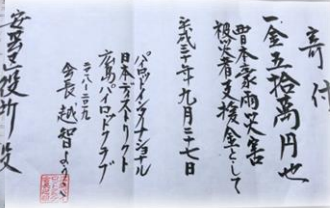 寄付
一金五拾萬円也
西日本豪雨災害
被災者支援金として
平成三十年九月二十七日
パイロットインターナショナル
日本ディストリクト
広島パイロットクラブ
二〇一八-二〇一九
会長 越智
安芸区役所